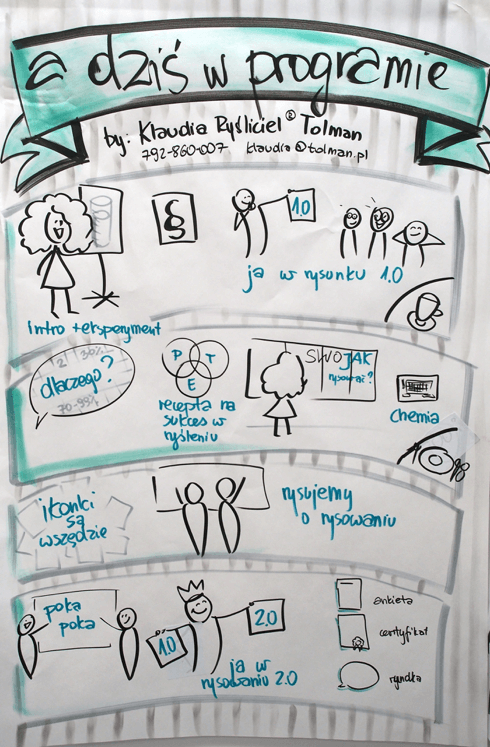 a dziś w programie
by: Klaudia Ryśliciel® Tolman
792-860-007 klaudia@tolman.pl
§
1.0
ja w rysunku 1.0
intro + eksperyment
2 30%
dlaczego?
70-99%
P T
E
recepta na
sukces w
ryśleniu
SŁWO JAK
rysować?
chemia
ikonki
są
wszędzie
rysujemy
o rysowaniu
poka
poka
1.0
2.0
ja w
rysowaniu 2.0
ankieta
certyfikat
ryndka